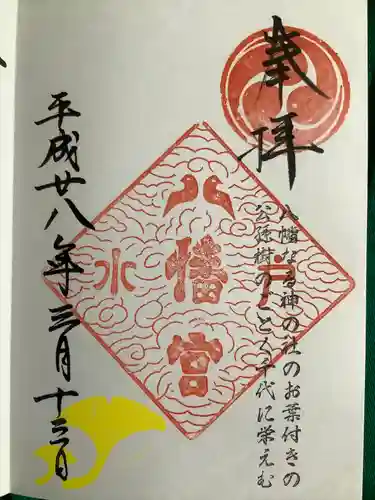 奉拝
八幡なる神の社のお葉付きの
公孫樹のごとく千代に栄えむ
八幡宮
水
平成廿八年三月十三日